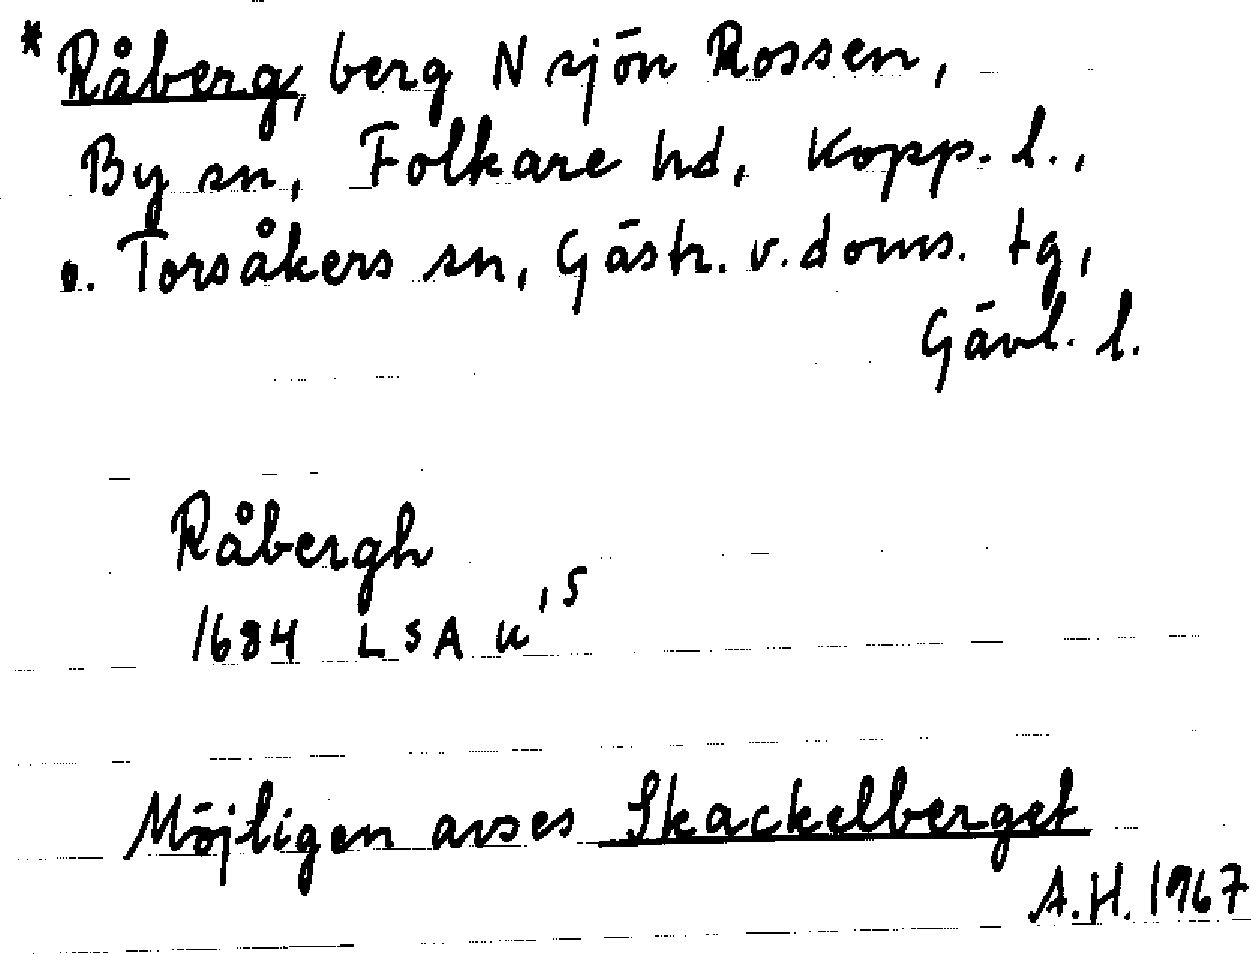 * Råberg, berg N sjön Rossen,
By sn, Folkare hd, Kopp. l.,
o. Torsåkers sn, Gästr. v. doms. tg,
Gävl. l.
Råbergh
1684 LSA K'5
Möjligen avses Skackelberget
A.H. 1967